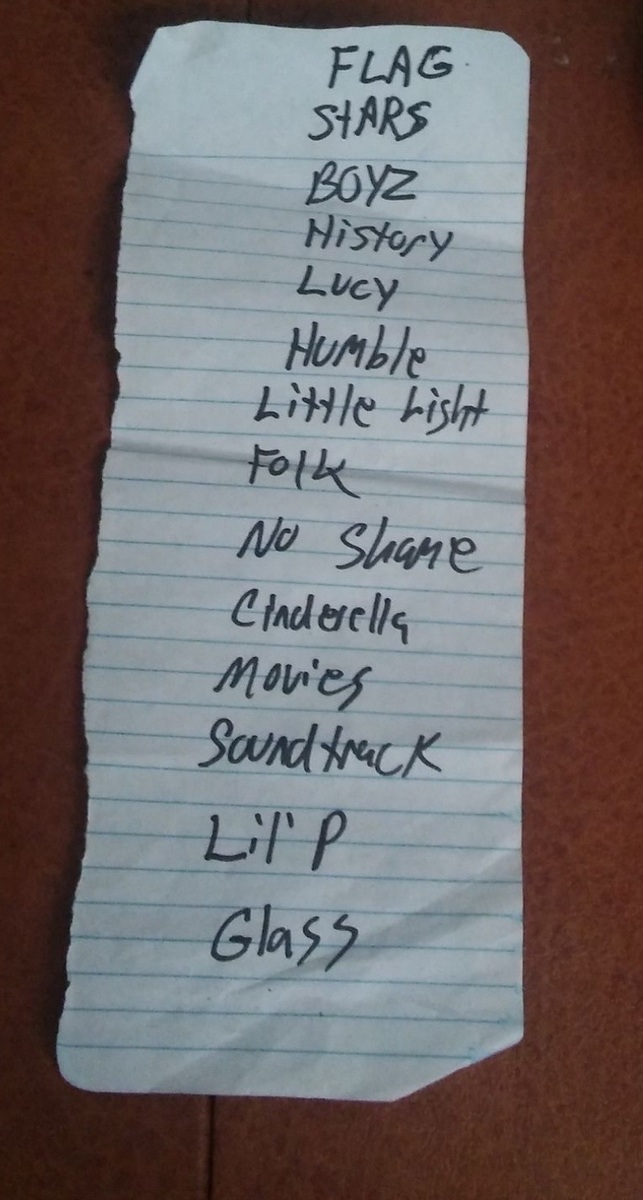 FLAG
StARS
BOYZ
History
Lucy
Humble
Little Light
Folk
No Shame
Cinderella
Movies
Soundtrack
Lil' P
Glass